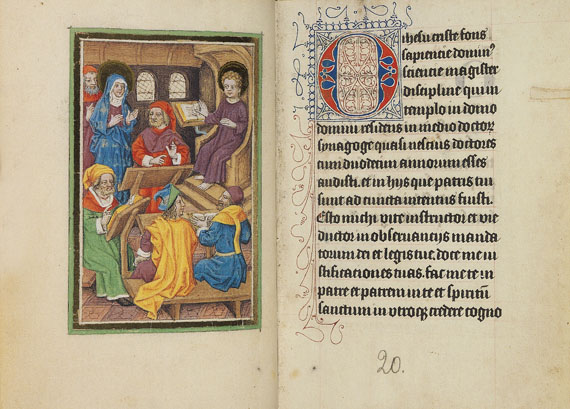 O ihesu criste fons
sapiencie domin⁹
sciencie magister
discipline qui in
templo in domo
domini residens in medio doctor
synagoge quasi nescius doctores
cum duodecim annorum esses
audisti. et in hijs que patris tui
sunt ad cuncta intentus fuisti.
Esto michi vite instructor et vie
ductor in observancijs manda
torum dei et legis tue. doce me iu
stificaciones tuas. fac me te in
patre et patrem in te et spiritū
sanctum in utroqꝫ credere cogno
20.